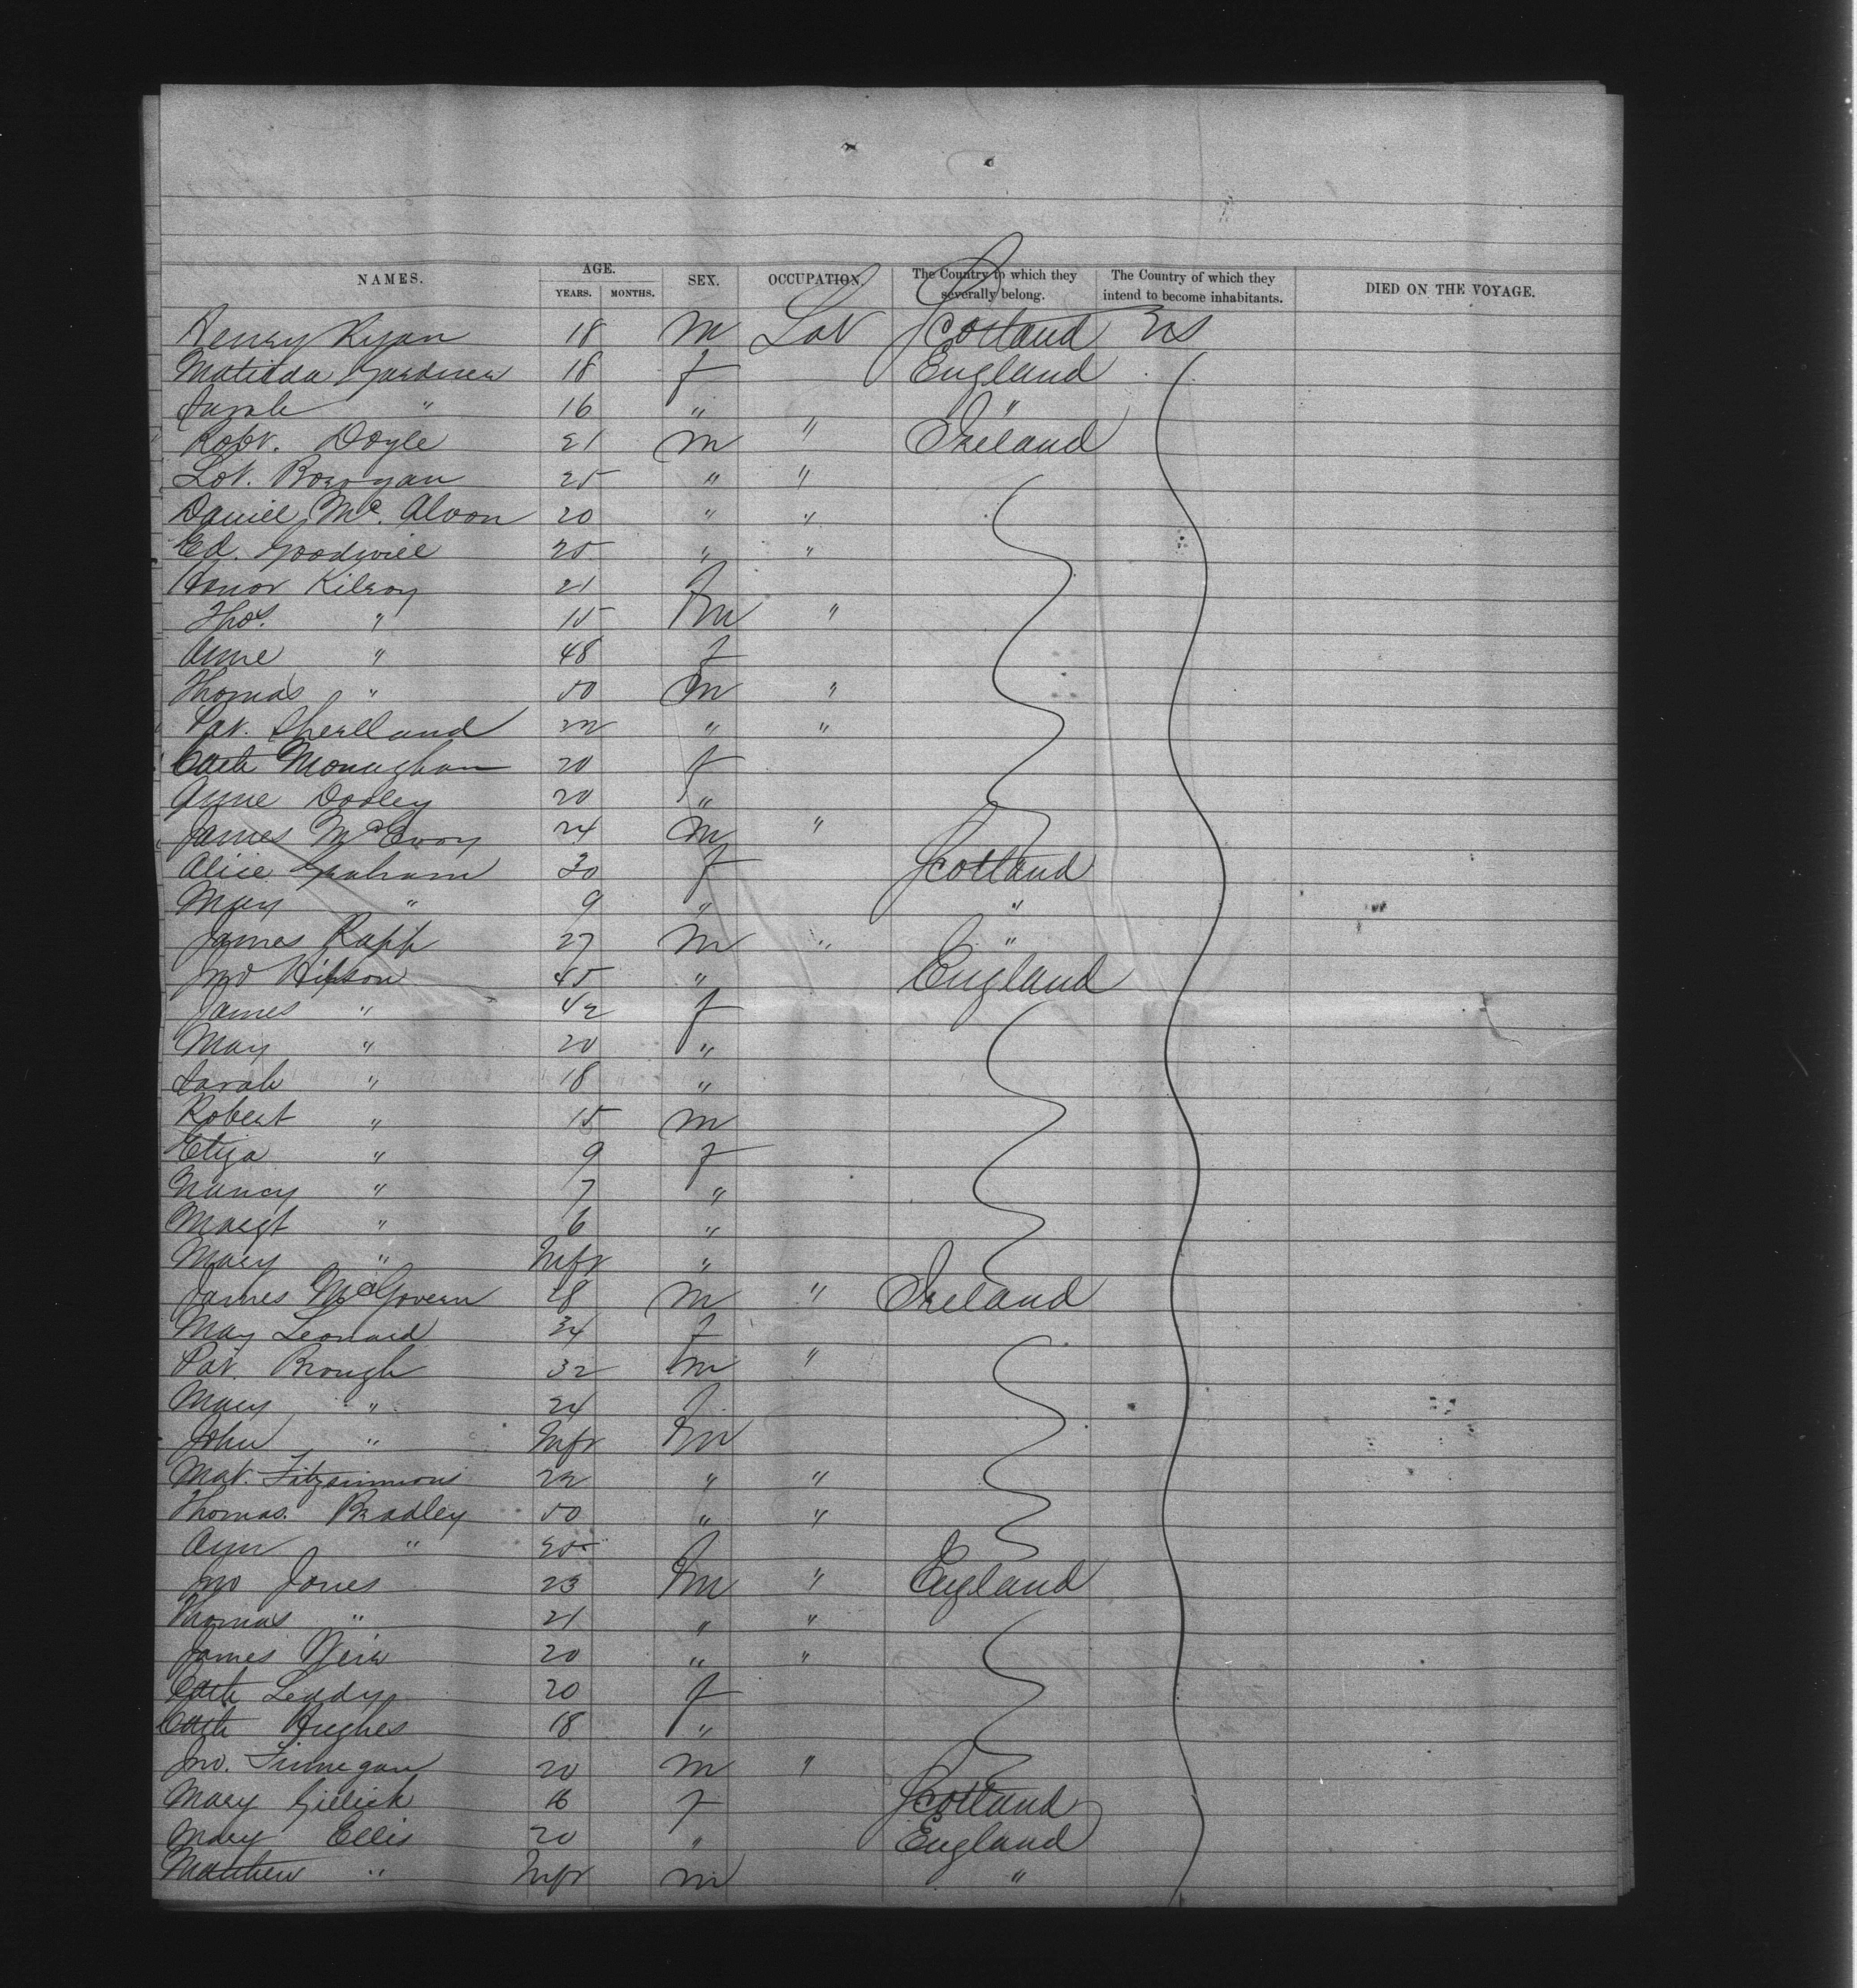 NAMES. AGE. SEX. OCCUPATION. The Country to which they severally belong. The Country of which they intend to become inhabitants. DIED ON THE VOYAGE.
YEARS. MONTHS.
Henry Ryan 18 m Lab Scotland US
Matilda Gardner 18 f England
Sarah " 16 " "
Robt. Doyle 21 m " Ireland
25 " "
Daniel Mc. 20 " "
Ed. Goodwill 25 " "
Honor Kilroy 21 f
Thos. " 15 m "
Anne " 48 f
Thomas " 50 m "
Pat. 22 " "
Cath Monaghan 20 f
Anne Dooley 20 "
James McEvoy 24 m "
Alice Graham 30 f Scotland
Mary " 9 " "
James Rapp 27 m " "
Jno Hipson 45 " England
James " 42 f
May " 20 "
Sarah " 18 "
Robert " 15 m
Eliza " 9 f
Nancy " 7 "
Margt " 6 "
Mary " Inft "
James McGovern 28 m " Ireland
May Leonard 34 f
Pat. Brough 32 m "
Mary " 24 f
John " Inft m
Mat. Fitzsimmons 22 " "
Thomas. Bradley 50 " "
Ann " 20 f
Jno Jones 23 m " England
Thomas " 21 " "
James Weir 20 " "
Cath Leddy 20 f
Cath Hughes 18 "
Jno. Finnegan 20 m "
Mary Gillick 16 f Scotland
Mary Ellis 20 " England
Matthew " Inft m "